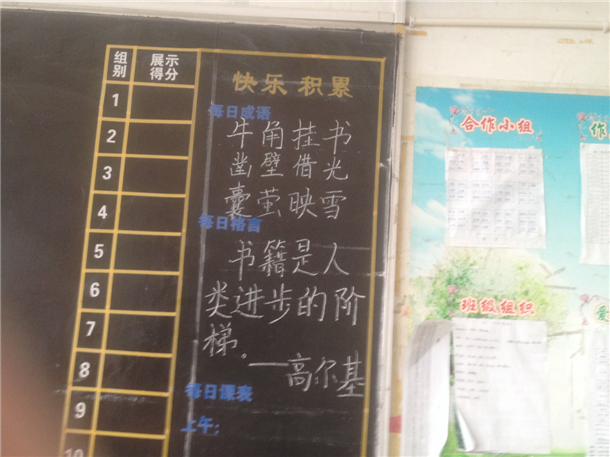 组别 展示得分
1
2
3
4
5
6
7
8
9
10
快乐 积累
每日成语
牛角挂书
凿壁借光
囊萤映雪
每日格言
书籍是人
类进步的阶
梯。——高尔基
每日课表
上午:
合作小组
作
班级组织
爱